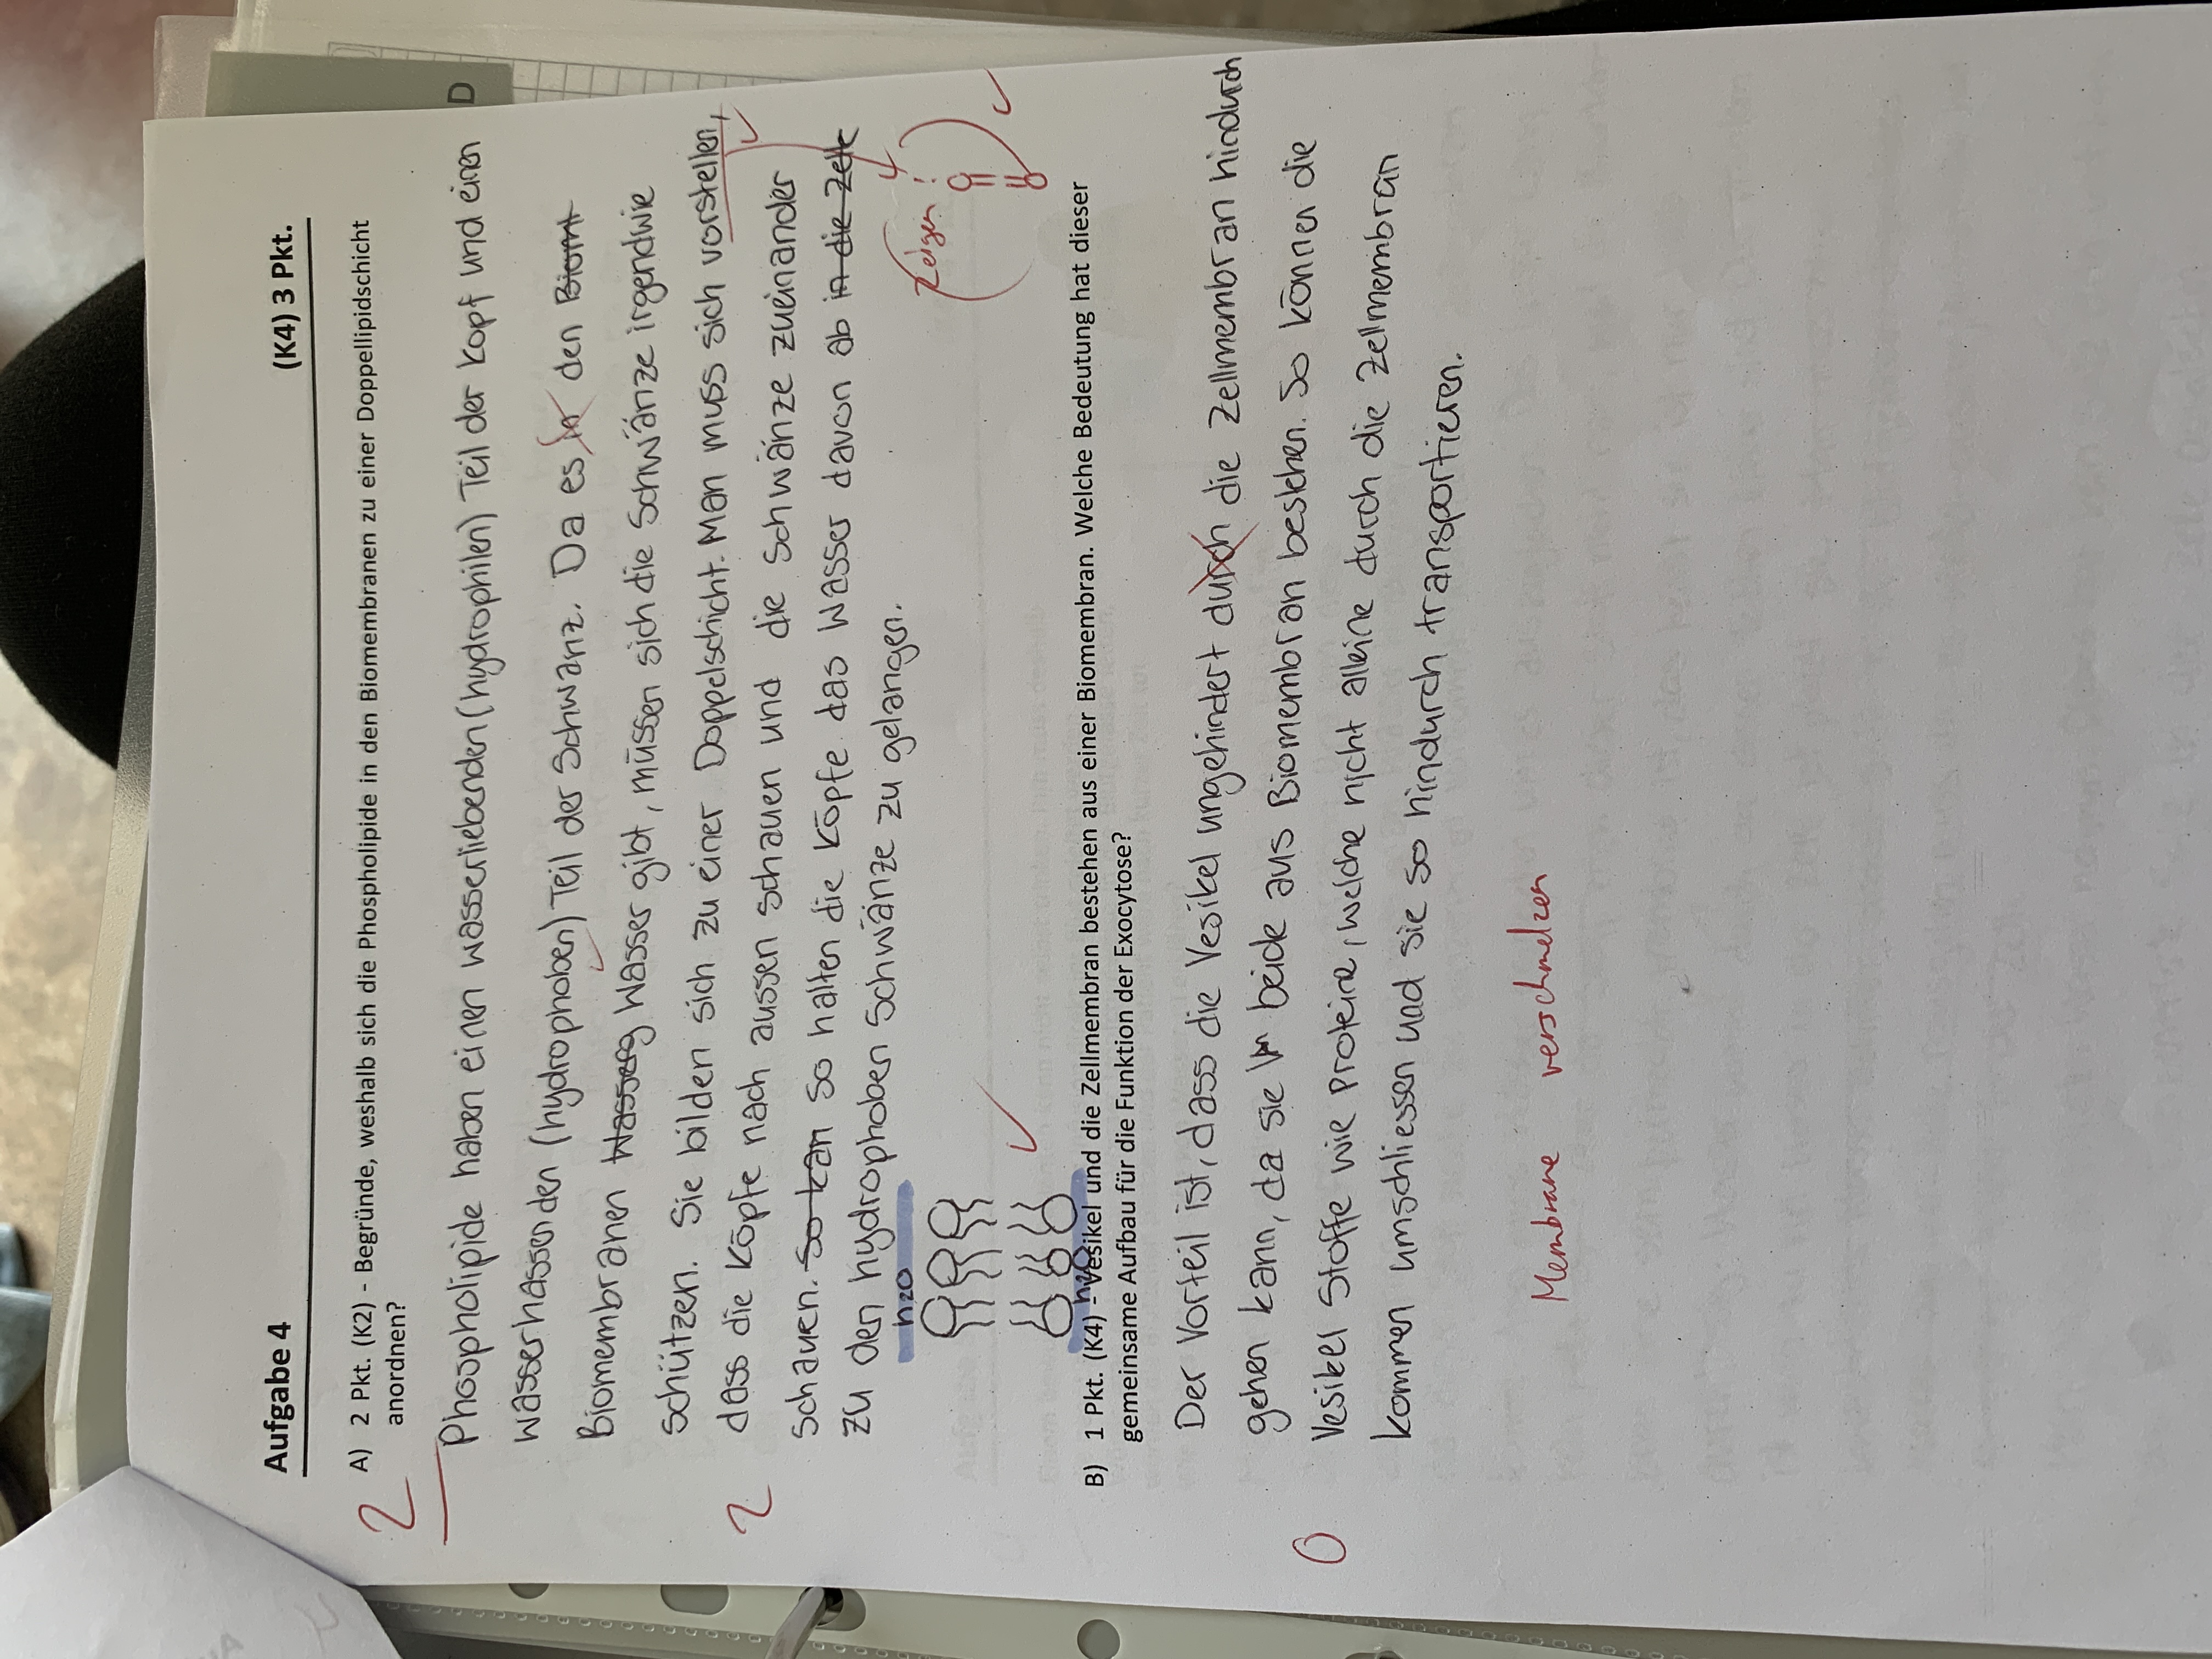 Aufgabe 4 (K4) 3 Pkt.
2
A) 2 Pkt. (K2) - Begründe, weshalb sich die Phospholipide in den Biomembranen zu einer Doppellipidschicht
anordnen?
Phospholipide haben einen wasserliebenden (hydrophilen) Teil der Kopf und einen
D
wasserhassenden (hydrophoben) Teil der Schwanz. Da es in den Biomt
Biomembranen Wasserg Wasser gibt, müssen sich die Schwänze irgendwie
schützen. Sie bilden sich zu einer Doppelschicht. Man muss sich vorstellen,
2
dass die Köpfe nach aussen schauen und die Schwänze zueinander
schauen. So kan So halten die Köpfe das Wasser davon ab in die Zelle
zu den hydrophoben Schwänze zu gelangen.
h2O
Zeigen !
h2O
B) 1 Pkt. (K4) - Vesikel und die Zellmembran bestehen aus einer Biomembran. Welche Bedeutung hat dieser
gemeinsame Aufbau für die Funktion der Exocytose?
Der Vorteil ist, dass die Vesikel ungehindert durch die Zellmembran hindurch
gehen kann, da sie beide aus Biomembran bestehen. So können die
0
Vesikel Stoffe wie Proteine, welche nicht alleine durch die Zellmembran
kommen umschliessen und sie so hindurch transportieren.
Membrane verschmelzen